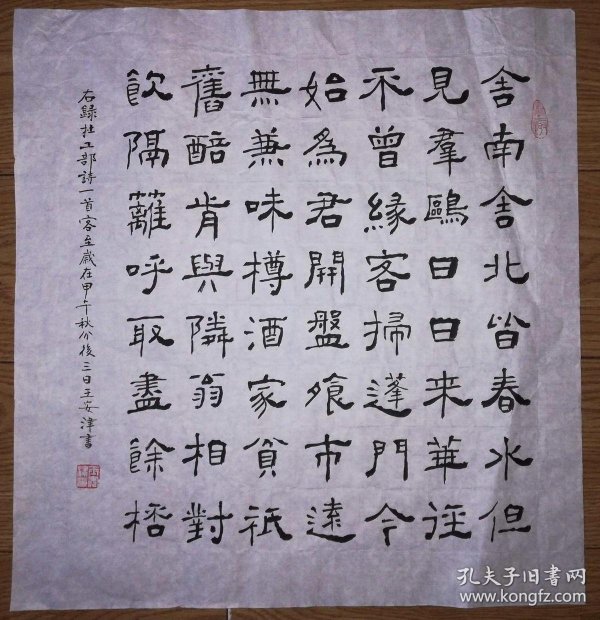 舍南舍北皆春水但
見羣鷗日日来華徑
不曾緣客掃蓬門今
始為君開盤飧市遠
無兼味樽酒家貧祇
舊醅肯與隣翁相對
飲隔籬呼取盡餘桮
右録杜工部詩一首客至歲在甲午秋分後三日王安津書
孔夫子旧書网
www.kongfz.com